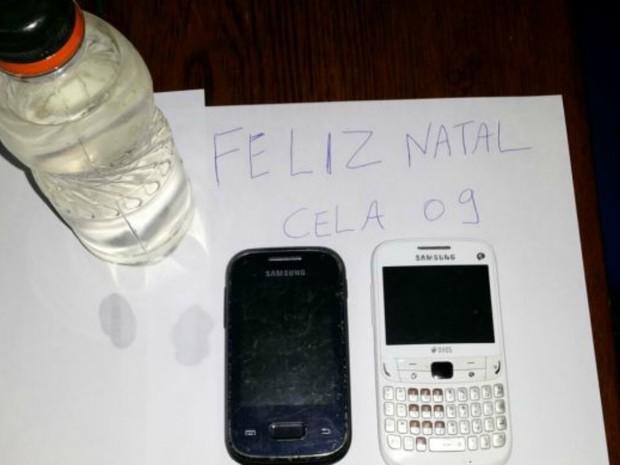 FELIZ NATAL
CELA 09
SAMSUNG
SAMSUNG
DUOS